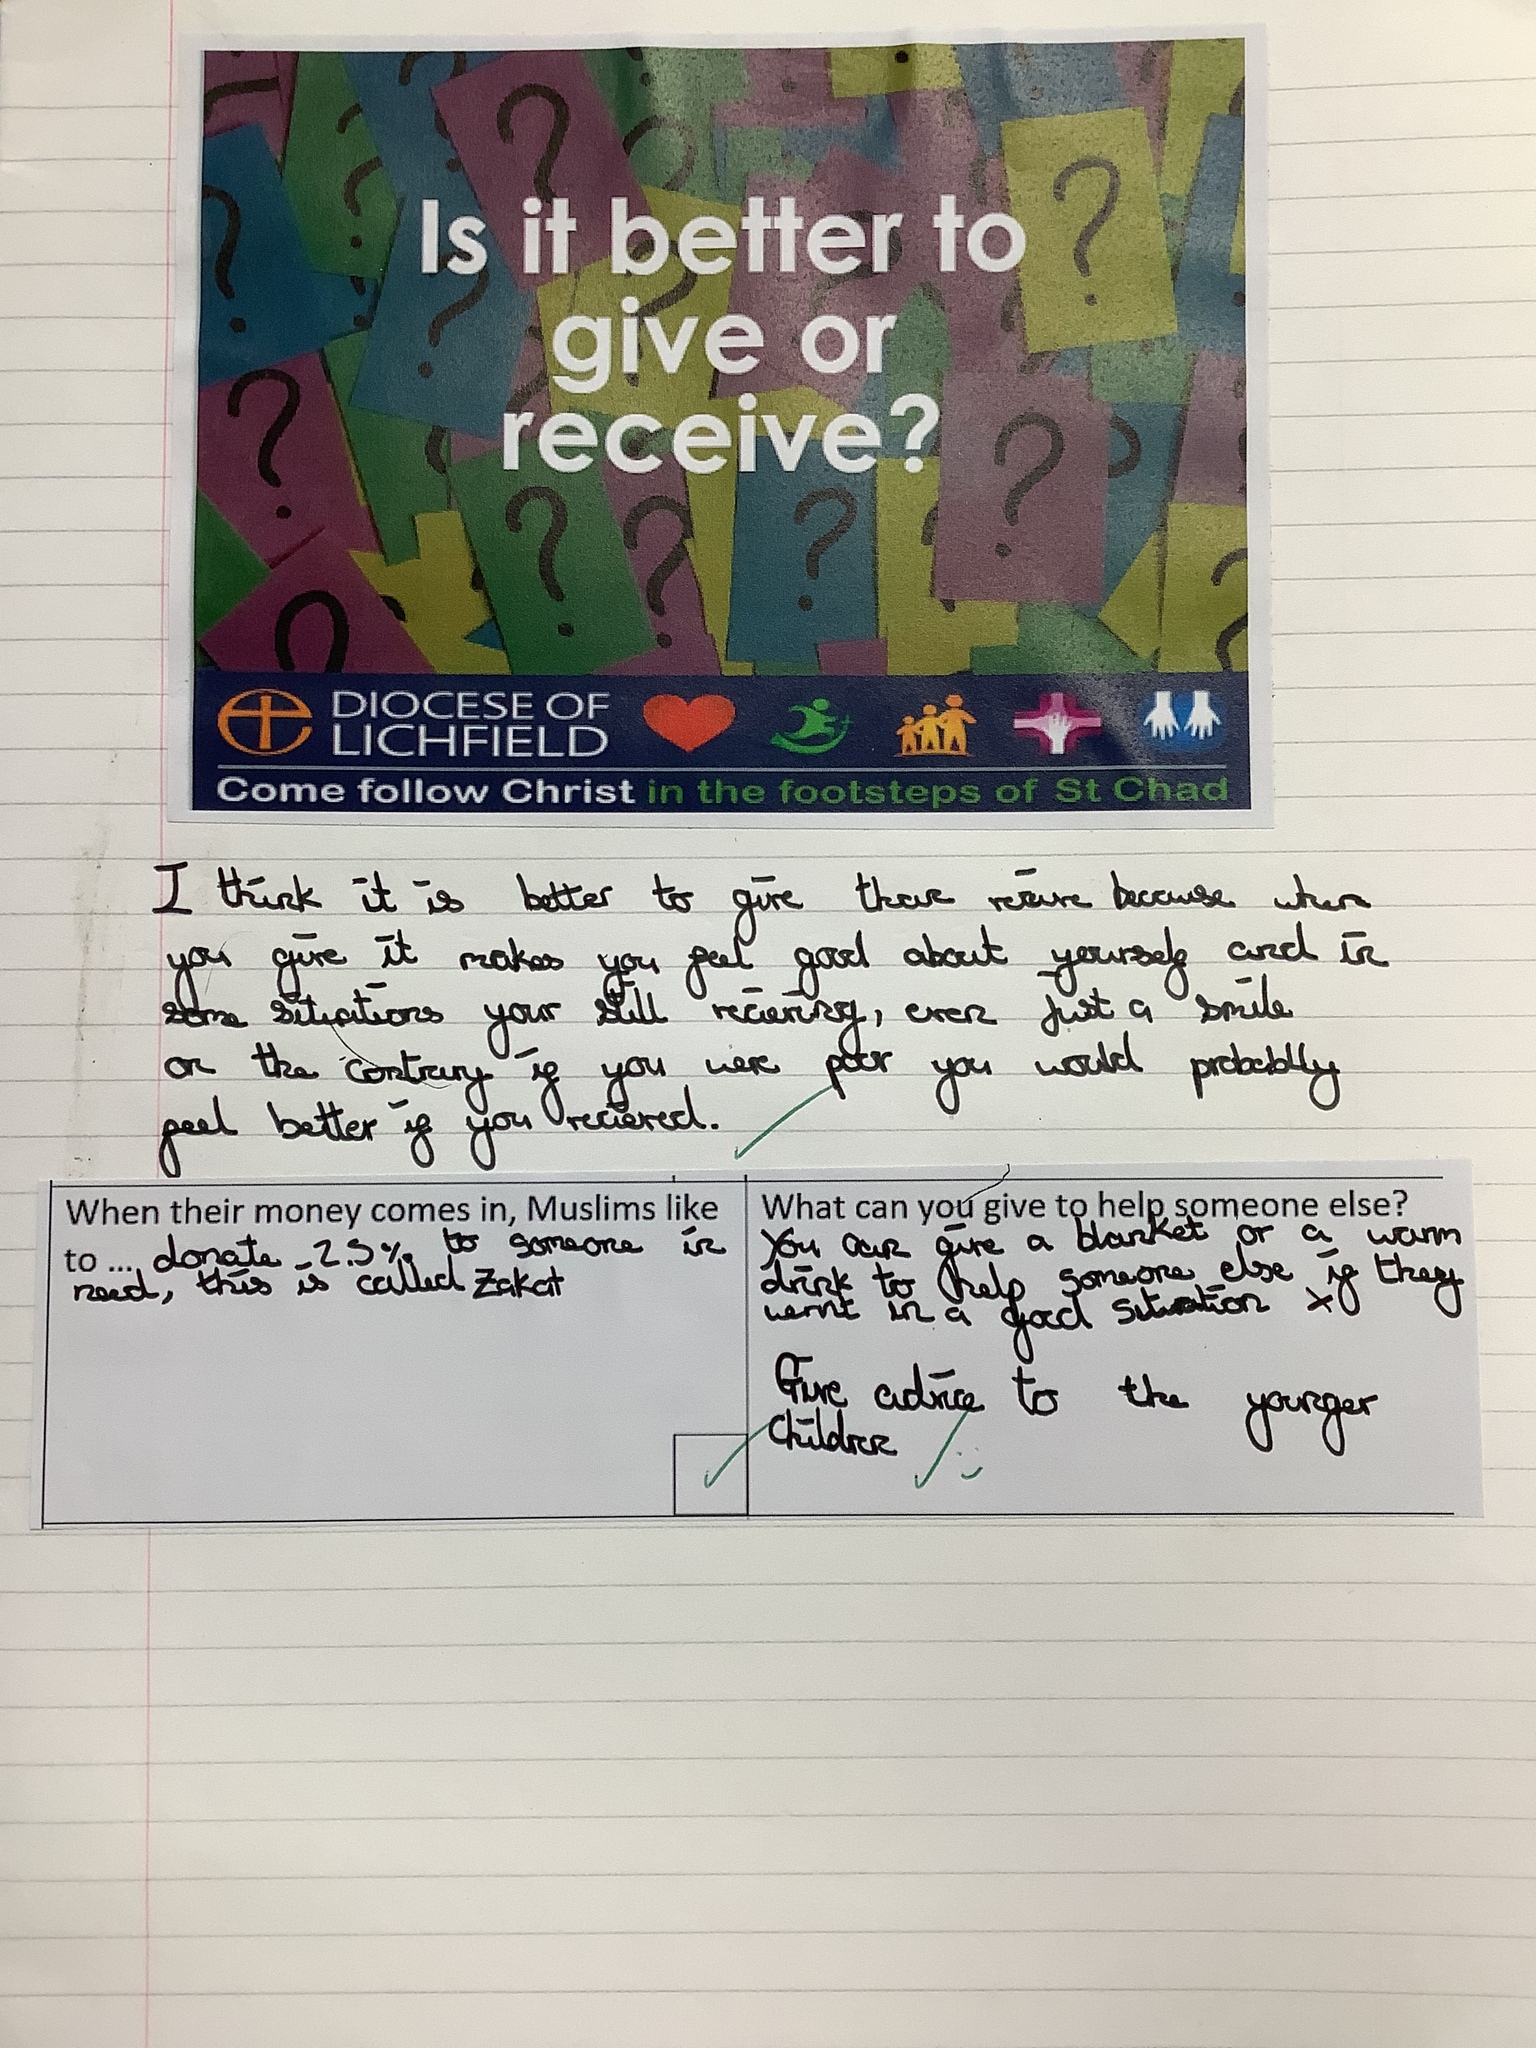 Is it better to
give or
receive?
DIOCESE OF
LICHFIELD
Come follow Christ in the footsteps of St Chad
I think it is better to give than reieve because when
you give it makes you feel good about yourself and in
some situations your still recieving, even just a smile
on the contrary if you were poor you would probablly
feel better if you recieved.
When their money comes in, Muslims like
to ... donate 2.5% to someone in
need, this is called Zakat
What can you give to help someone else?
You can give a blanket or a warm
drink to help someone else if they
wernt in a good situation x
Give advice to the younger
Children